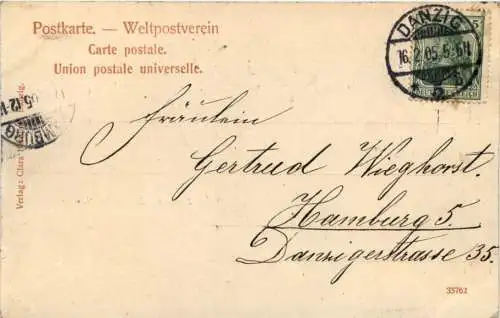 Postkarte. — Weltpostverein
Carte postale.
Union postale universelle.
DANZIG
16.2.05.5-6N
Fräulein
Gertrud Wieghorst.
Hamburg 5.
Danzigerstrasse 35.
Verlag: Clara
35762